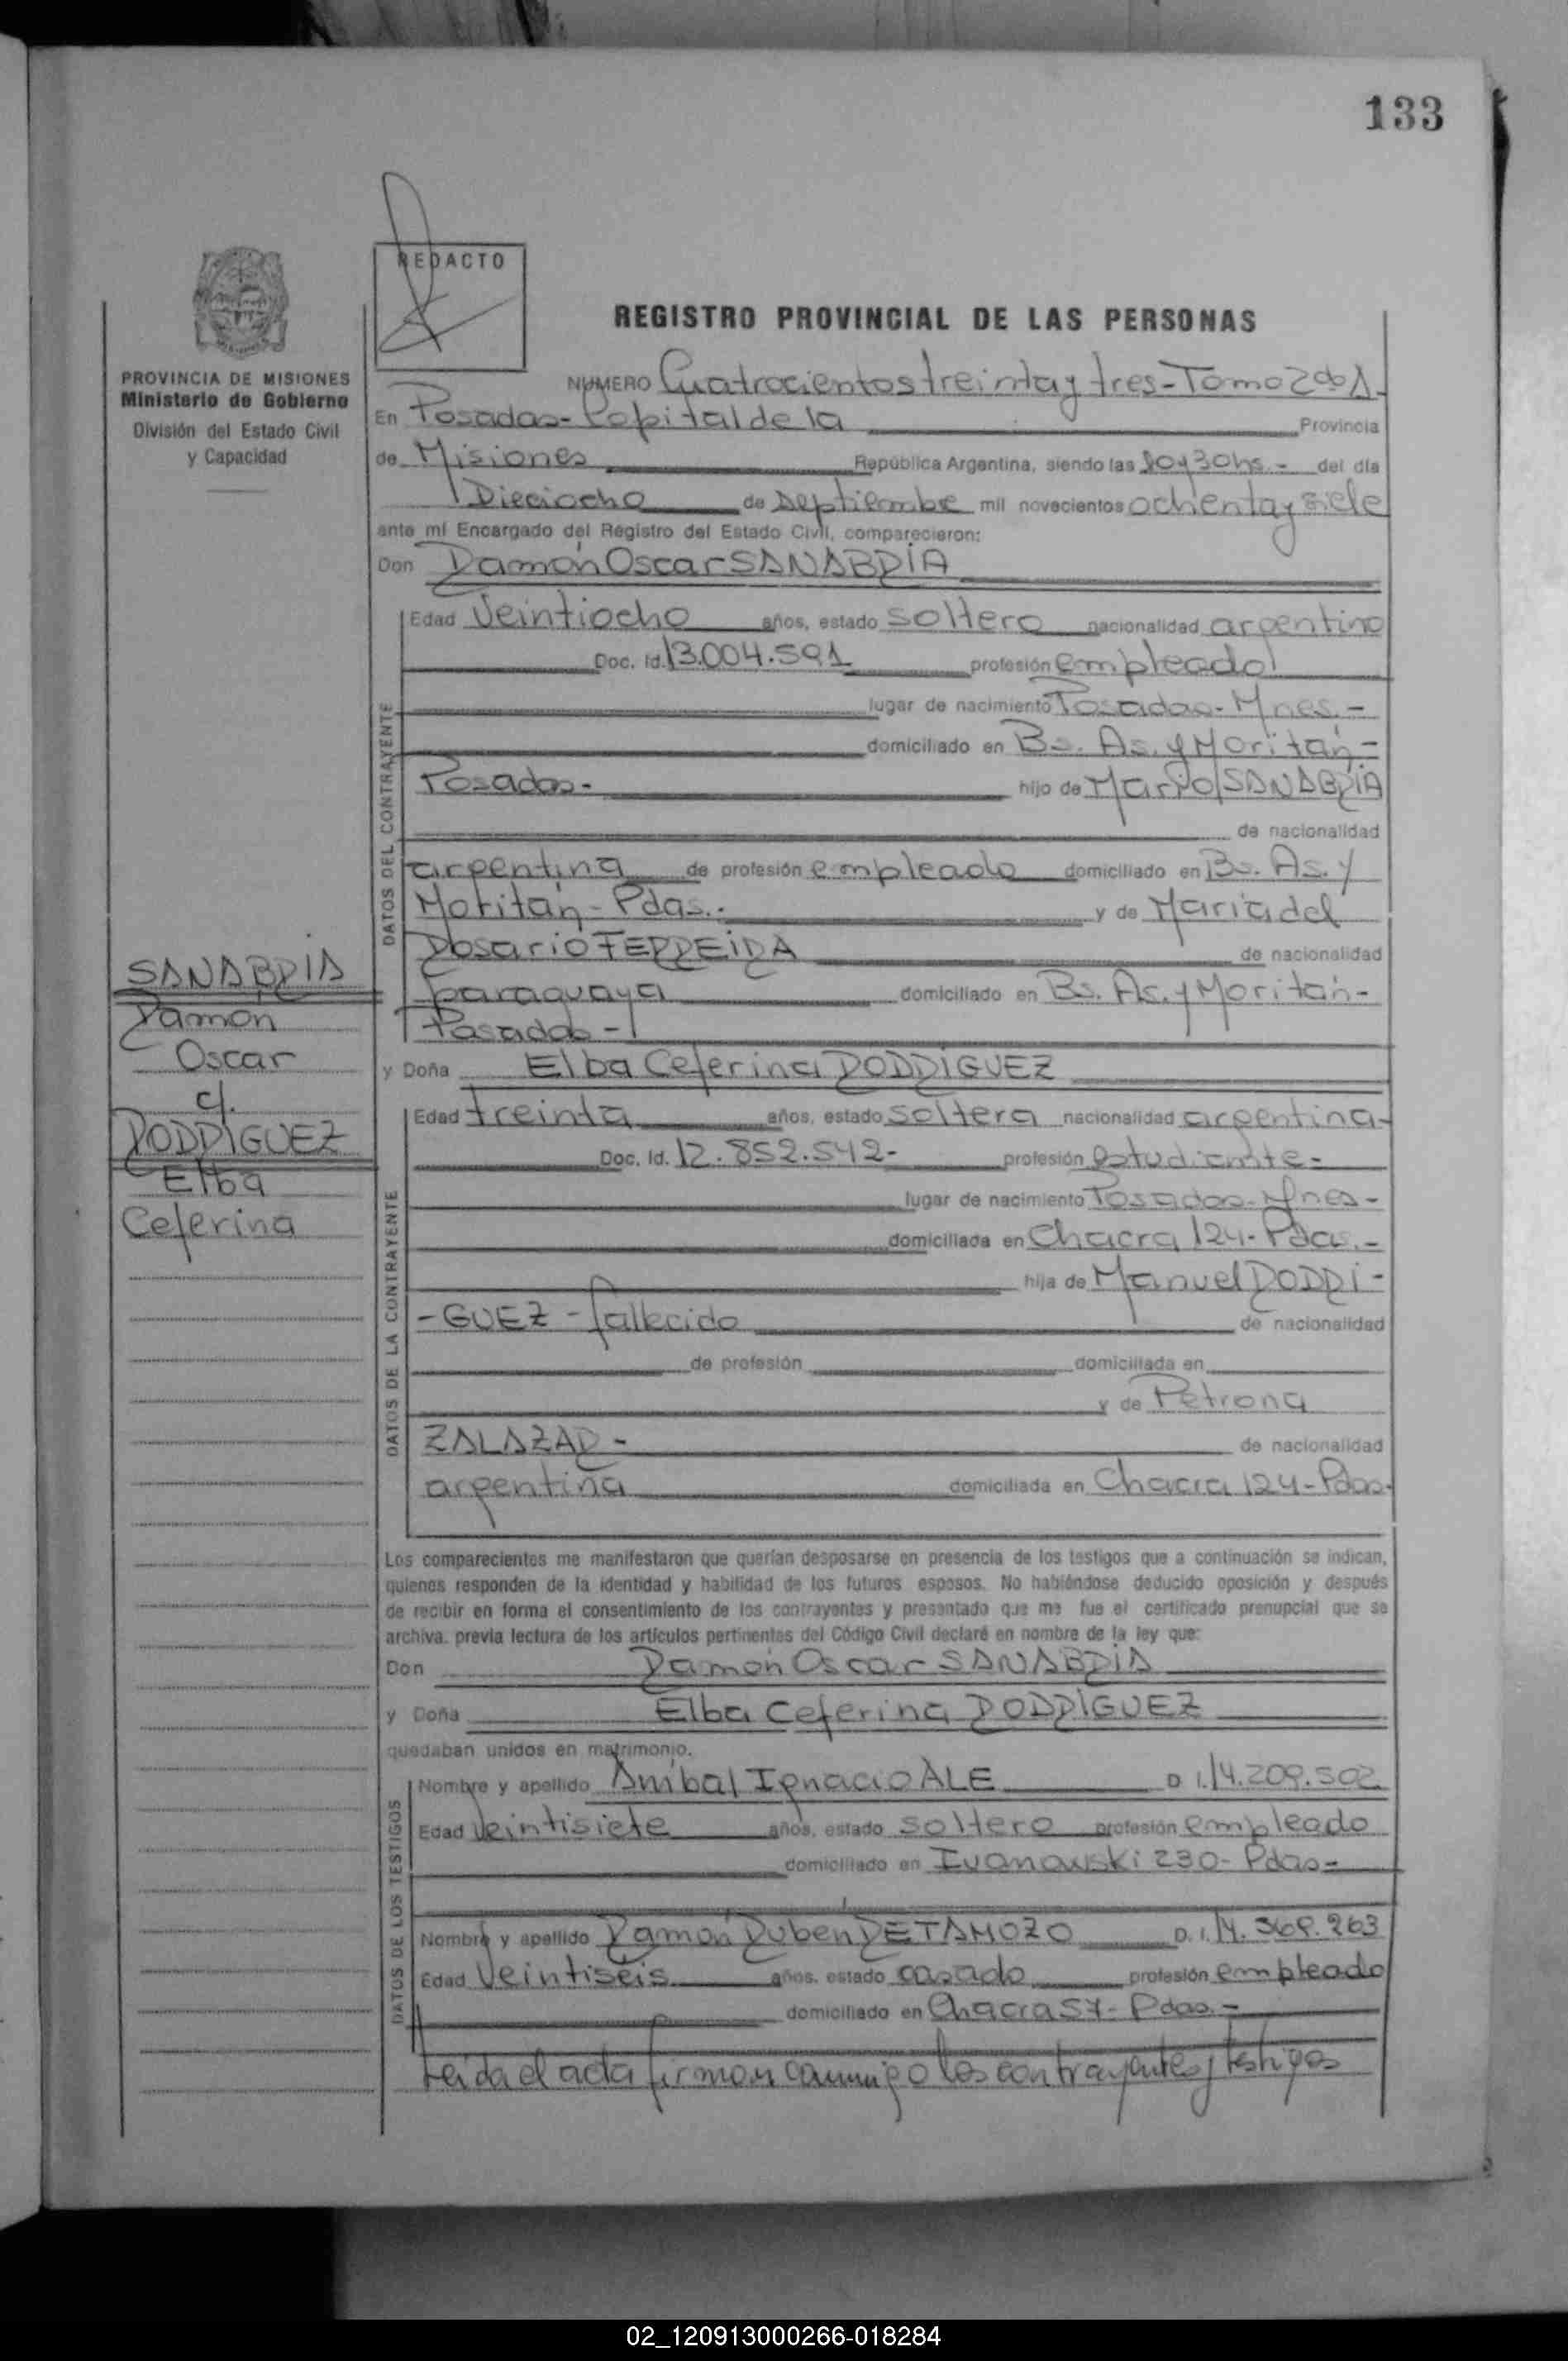 133
REDACTO
REGISTRO PROVINCIAL DE LAS PERSONAS
PROVINCIA DE MISIONES
Ministerio de Gobierno
División del Estado Civil
y Capacidad
NUMERO Cuatrocientos treinta y tres - Tomo 2do A-
En Posadas - Capital de la Provincia
de Misiones República Argentina, siendo las 10 y 30 hs. - del día
Dieciocho de septiembre mil novecientos ochenta y siete
ante mí Encargado del Registro del Estado Civil, comparecieron:
Don Ramón Oscar SANABRIA
DATOS DEL CONTRAYENTE
Edad Veintiocho años, estado soltero nacionalidad argentino
Doc. Id. 13.004.591 profesión empleado
lugar de nacimiento Posadas - Mnes. -
domiciliado en Bs. As. y Moritán -
Posadas - hijo de Mario SANABRIA
de nacionalidad
argentina de profesión empleado domiciliado en Bs. As. y
Moritán - Pdas. - y de María del
Rosario FERREIRA de nacionalidad
paraguaya domiciliado en Bs. As. y Moritán -
Posadas -
SANABRIA
Ramón
Oscar
c/.
RODRIGUEZ
Elba
Ceferina
y Doña Elba Ceferina RODRIGUEZ
DATOS DE LA CONTRAYENTE
Edad treinta años, estado soltera nacionalidad argentina -
Doc. Id. 12.852.542 - profesión estudiante -
lugar de nacimiento Posadas - Mnes -
domiciliada en Chacra 124 - Pdas. -
hija de Manuel RODRI -
- GUEZ - fallecido de nacionalidad
de profesión domiciliada en
y de Petrona
ZALAZAR - de nacionalidad
argentina domiciliada en Chacra 124 - Pdas.
Los comparecientes me manifestaron que querían desposarse en presencia de los testigos que a continuación se indican,
quienes responden de la identidad y habilidad de los futuros esposos. No habiéndose deducido oposición y después
de recibir en forma el consentimiento de los contrayentes y presentado que me fue el certificado prenupcial que se
archiva. previa lectura de los artículos pertinentes del Código Civil declaré en nombre de la ley que:
Don Ramón Oscar SANABRIA
y Doña Elba Ceferina RODRIGUEZ
quedaban unidos en matrimonio.
DATOS DE LOS TESTIGOS
Nombre y apellido Anibal Ignacio ALE D I. 14.209.502
Edad Veintisiete años, estado soltero profesión empleado
domiciliado en Ivanowski 230 - Pdas -
Nombre y apellido Ramón Ruben RETAMOZO D. I. 14.369.263
Edad Veintiseis años, estado casado profesión empleado
domiciliado en Chacra 57 - Pdas. -
Leída el acta firman conmigo los contrayentes y testigos
02_120913000266-018284